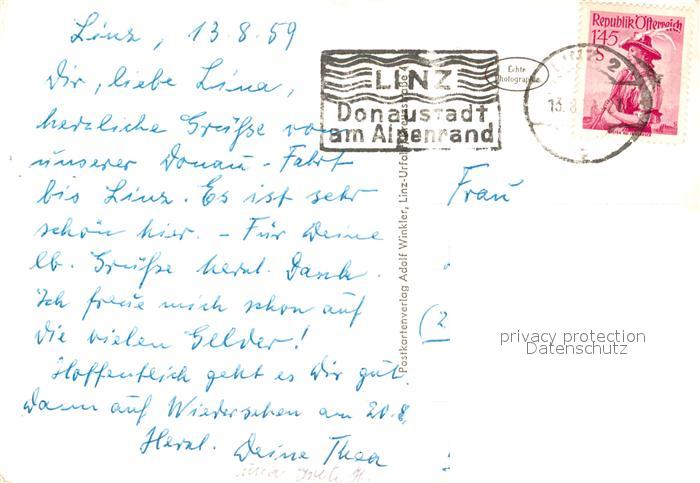 Linz, 13.8.59
Dir, liebe Lina,
herzliche Grüße von
unserer Donau-Fahrt
bis Linz. Es ist sehr
schön hier. - Für Deine
lb. Grüße herzl. Dank.
Ich freue mich schon auf
die vielen Gelder!
Hoffentlich geht es Dir gut.
Dann auf Wiedersehen am 20.8.
Herzl. Deine Thea
LINZ
Donaustadt
am Alpenrand
Echte
Photographie
Republik Österreich
1S45
LINZ 2
13.8
Postkartenverlag Adolf Winkler, Linz-Urfahr
Frau
(2
privacy protection
Datenschutz